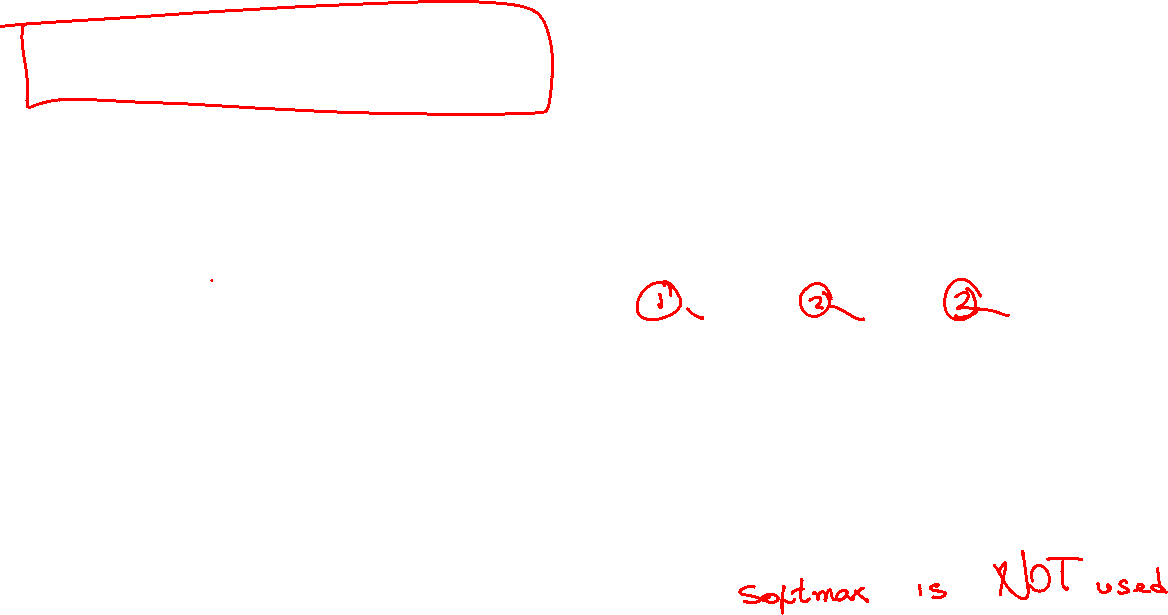 ① ② ②
Softmax is NOT used